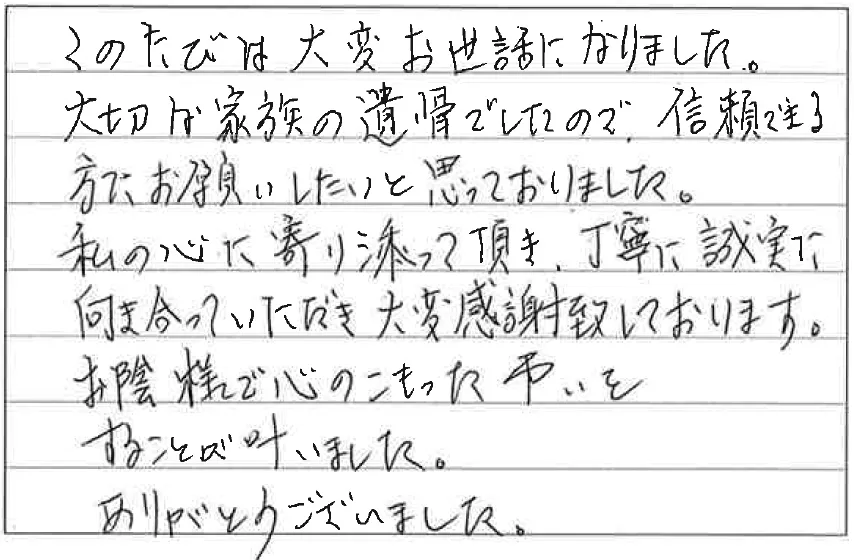 このたびは大変お世話になりました。
大切な家族の遺骨でしたので、信頼できる
方にお願いしたいと思っておりました。
私の心に寄り添って頂き、丁寧に誠実に
向き合っていただき大変感謝致しております。
お陰様で心のこもった弔いを
することが叶いました。
ありがとうございました。